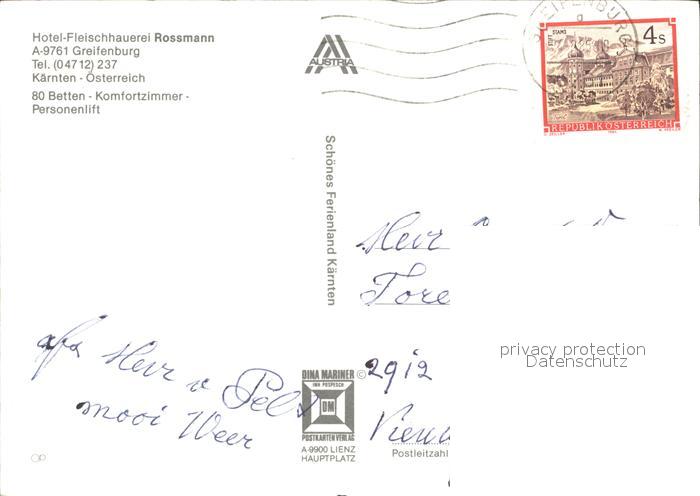 Hotel-Fleischhauerei Rossmann
A-9761 Greifenburg
Tel. (04712) 237
Kärnten - Österreich
80 Betten - Komfortzimmer -
Personenlift
AUSTRIA
GREIFENBURG
STIFT STAMS
4 S
REPUBLIK ÖSTERREICH
Schönes Ferienland Kärnten
Herr
2912
Herr v Pels
mooi Weer
DINA MARINER ©
INH POSPESCH
DM
POSTKARTENVERLAG
A-9900 LIENZ
HAUPTPLATZ
Postleitzahl
privacy protection
Datenschutz